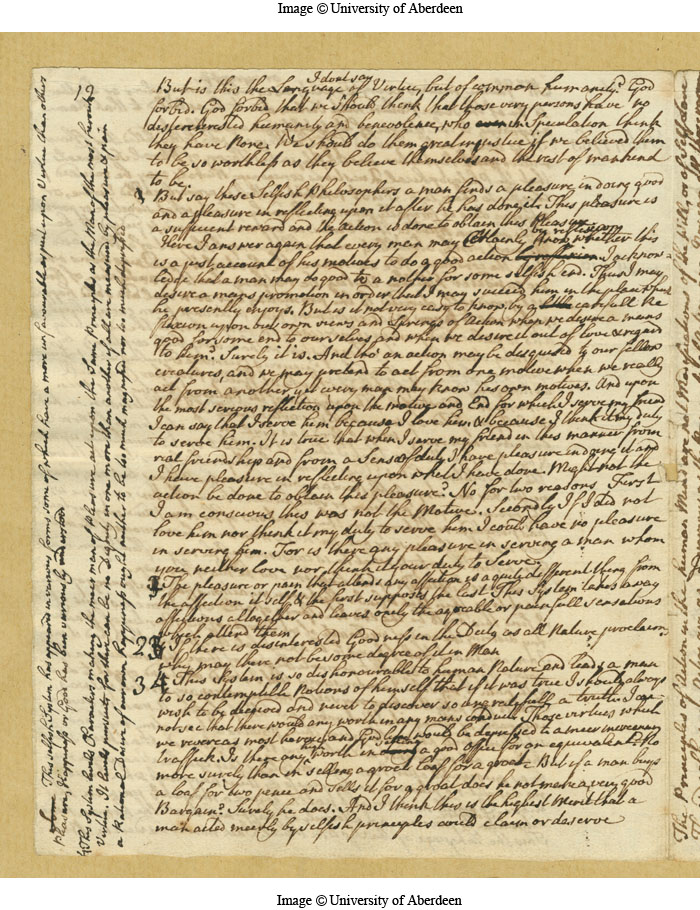 Image © University of Aberdeen
12
I dont say
But is this the Language of Virtue, but of common humanity? God
forbid. God forbid that we should think that those very persons have no
disinterested humanity and benevolence, who even in Speculation think
they have None. We should do them great injustice if we believed them
to be so worthless as they believe themselves and the rest of mankind
to be.
3 But say these Selfish Philosophers a man finds a pleasure in doing good
and a pleasure in reflecting upon it after he has done it. This pleasure is
a sufficient reward and the action is done to obtain this Pleasure
by reflexion
Here I answer again that every man may certainly know whether this
is a just account of his motives to do a good action I acknow-
ledge that a man may do good to another for some selfish end. Thus I may
desire a mans promotion in order that I may succeed him in the place which
he presently enjoys. But is it not very easy to know, by a little carefull Re
flexion upon our own views and Springs of Action when we desire a mans
good for some end to ourselves, and when we desire it out of love & regard
to him? Surely it is. And tho' an action may be disguised to our fellow
creatures, and we may pretend to act from one motive when we really
act from another yet every man may know his own motives. And upon
the most serious reflection upon the motive and End for which I serve my friend
I can say that I serve him because I love him & because I think it my duty
to serve him. It is true that when I serve my friend in this manner from
real friendship and from a Sense of duty I have pleasure in doing it and
I have pleasure in reflecting upon what I have done. Might not the
action be done to obtain this pleasure? No for two reasons First
I am conscious this was not the Motive. Secondly If I did not
love him nor think it my duty to serve him I could have no pleasure
in serving him. For is there any pleasure in serving a man whom
you neither love nor think it your duty to Serve
The pleasure or pain that attends any affection is a quite different thing from
the affection it self & the first supposes the last This System takes away
affections altogether and leaves only the agreable or painfull sensations
which attend them
23 If there is disinterested Goodness in the Deity as all Nature proclaims
why may there not be some degree of it in Man
34 This System is so dishonourable to human Nature and leads a man
to so contemptible Notions of himself that if it was true I should always
wish to be deceived and never to discover so ungratefull a truth I can
not see that there would any worth in any mans conduct. Those virtues which
we reverence as most heroick and God like would be depressed to a meer mercenary
traffick. Is there any worth in selling a good office for an equivalent? No
more surely than in selling a groat loaf for a groat But if a man buys
a loaf for two pence and sells it for a groat does he not make a very good
Bargain? Surely he does. And I think this is the highest Merit that a
man acted meerly by selfish principles could claim or deserve
This selfish System has appeared in various forms some of which have a more unfavourable aspect upon Virtue than others
Pleasure, Happiness or Good has been variously understood
4 This System levels Characters making the meer man of Pleasure act upon the Same Principles as the Man of the most heroick
Virtue. It levels pursuits for there can be no Dignity in one more than another if all are measured by pleasure & pain
a Rational Desire of our own Happiness ought neither to be too much magnified nor too much depressed
Image © University of Aberdeen